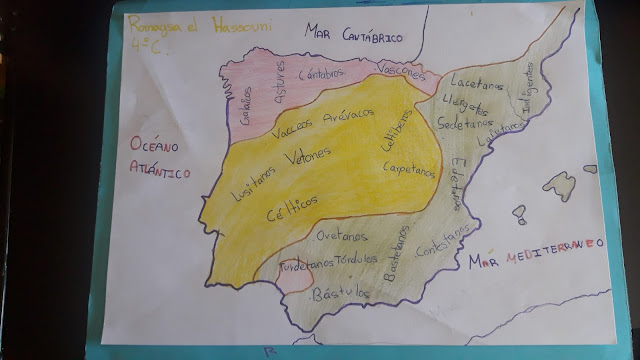 Romaysa el Hassouni
4º C.
MAR CANTÁBRICO
OCÉANO
ATLÁNTICO
Galaicos
Astures
Cántabros
Vascones
Vacceos Arévacos
Lusitanos
Vetones
Célticos
Celtíberos
Carpetanos
Lacetanos
Ilergetes
Sedetanos
Indigentes
Edetanos
Oretanos
Turdetanos Túrdulos
Bástulos
Bastetanos
Contestanos
MAR MEDITERRANEO